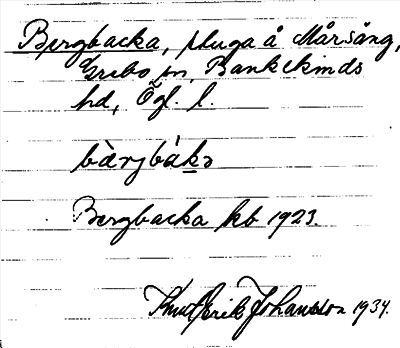 Bergbacka, stuga å Mårsäng,
Grebo sn, Bankekinds
hd, Ögl. l.
bærjbàkə
Bergbacka kb 1923.
Knut Erik Johansson 1934.